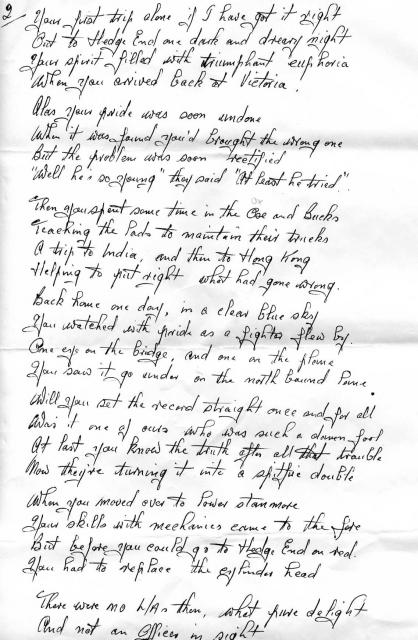 2
Your first trip alone if I have got it right
But to Hedge End one dark and dreary night
Your spirit filled with triumphant euphoria
When you arrived back at Victoria.
Alas your pride was soon undone
When it was found you'd brought the wrong one
But the problem was soon rectified
"Well he's so young" they said "At least he tried".
Then you spent some time in the Ox and Bucks
Teaching the Lads to maintain their trucks
A trip to India, and then to Hong Kong
Helping to put right what had gone wrong.
Back home one day, in a clear blue sky
You watched with pride as a fighter flew by
One eye on the bridge, and one on the plane
You saw it go under on the north bound lane.
Will you set the record straight once and for all
Was it one of ours who was such a damn fool
At last you know the truth after all that trouble
Now they're turning it into a spitfire double
When you moved over to Power Stanmore
Your skills with mechanics came to the fore
But before you could go to Hedge End on red.
You had to replace the cylinder head
There were no L/As then, what pure delight
And not an Officer in sight